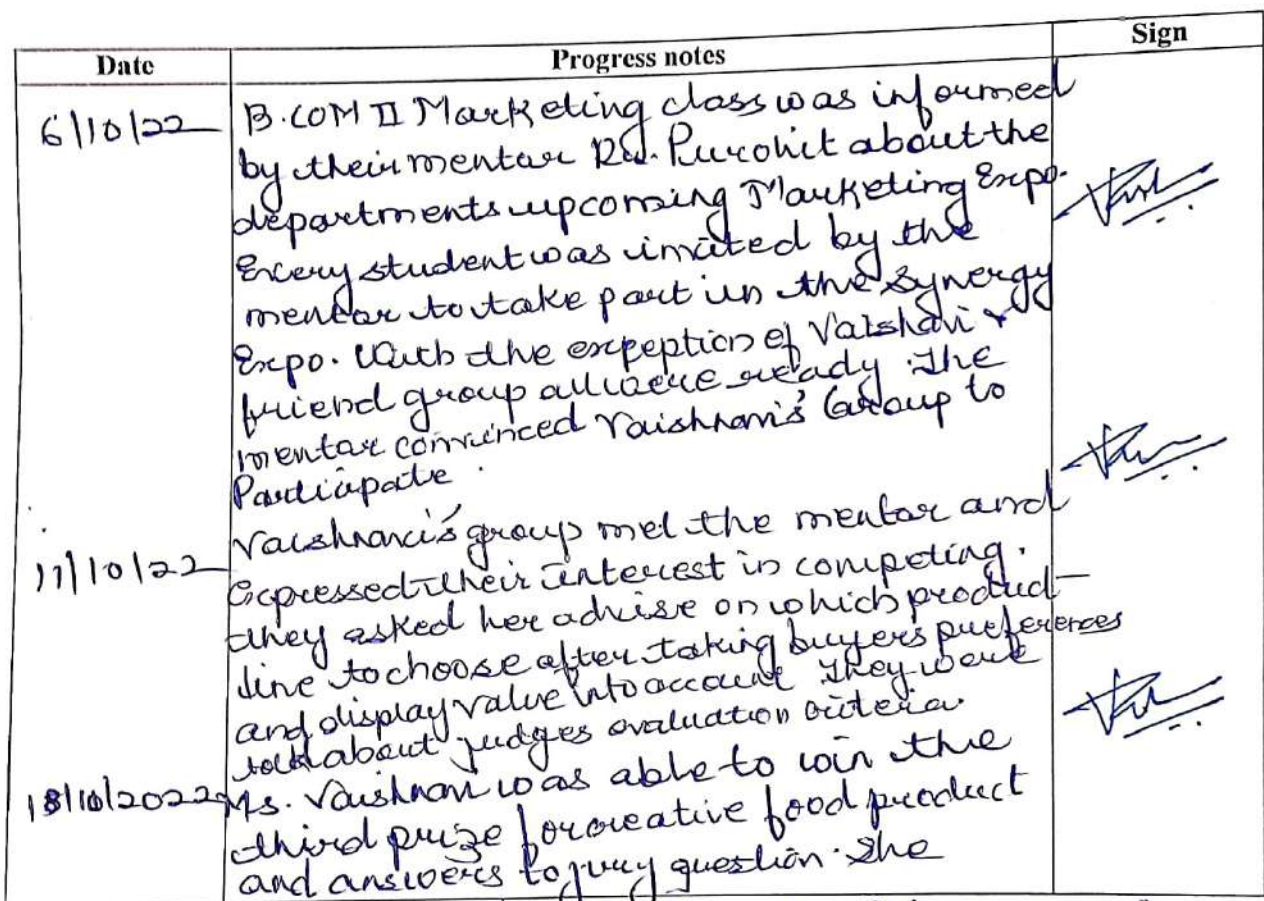 Date Progress notes Sign
6/10/22 B.COM II Marketing class was informed
by their mentar Dr. Purohit about the
departments upcoming Marketing Expo.
Every student was invited by the
mentar to take part in the Synergy
Expo. With the expeption of Vaishavi &
friend group all were ready. The
mentar convinced Vaishnavi's Group to
Participate.
11/10/22 Vaishnavi's group met the mentor and
Expressed their interest in competing.
they asked her advise on which product
line to choose after taking buyers preferences
and display value into account They were
told about judges evaluation criteria.
18/10/2022 Ms. Vaishnavi was able to win the
third prize for creative food product
and answers to jury question. She